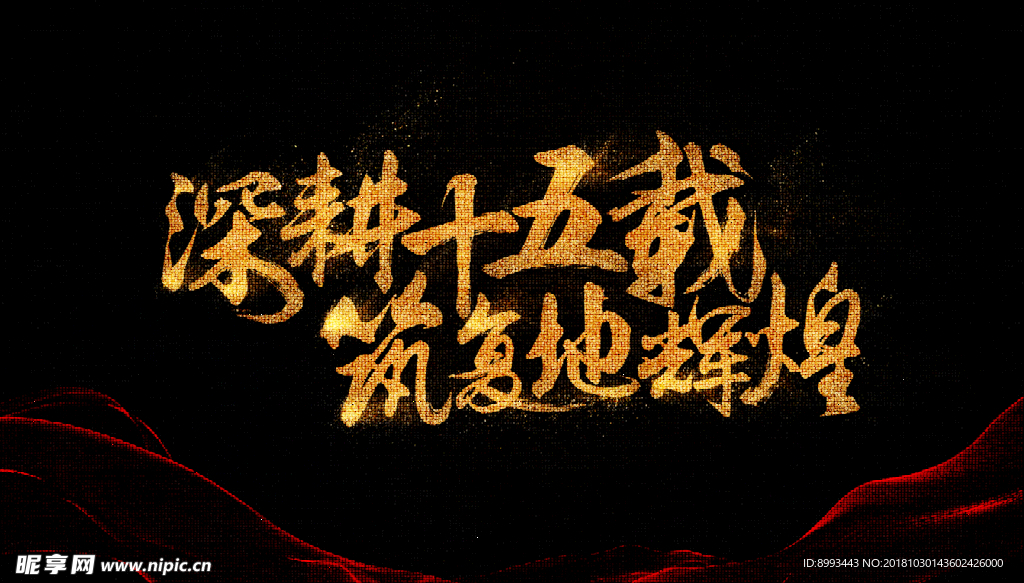 深耕十五载
筑复地辉煌
昵享网 www.nipic.cn
ID:8993443 NO:20181030143602426000